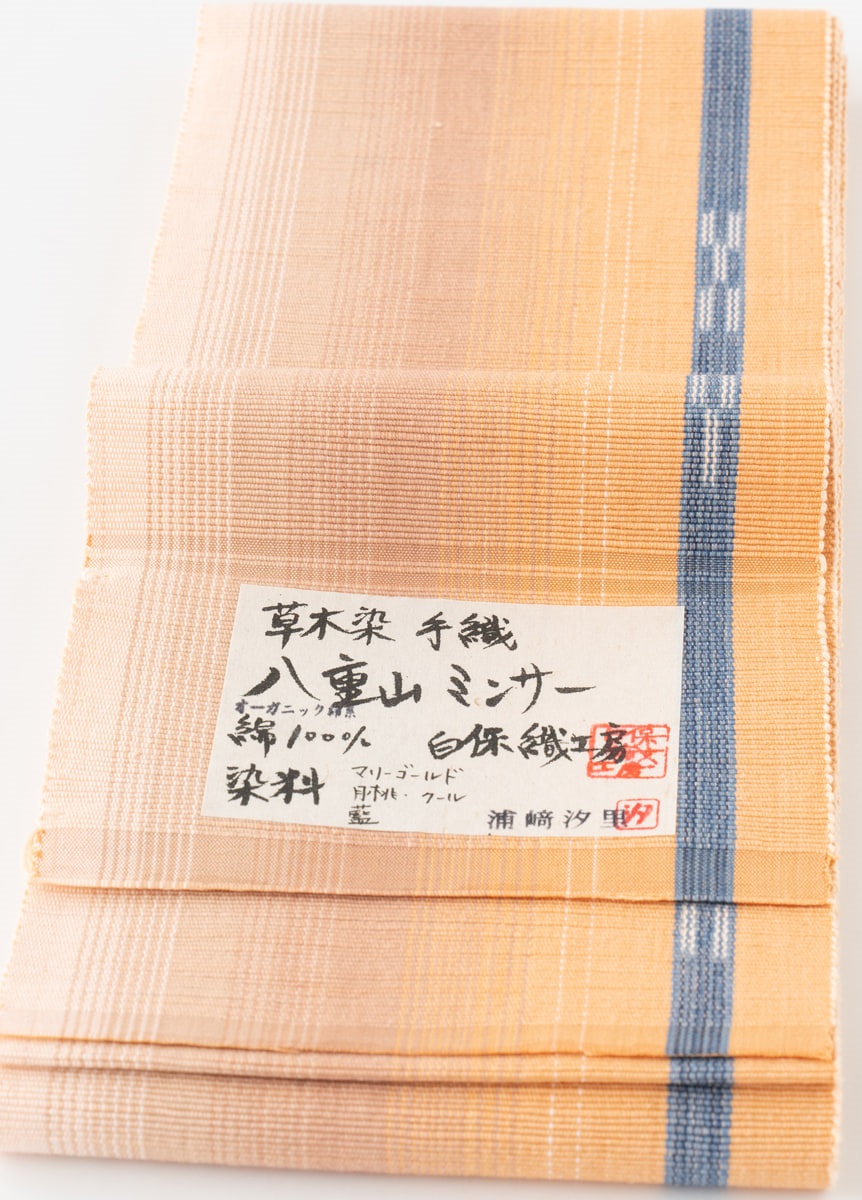 草木染 手織
八重山 ミンサー
オーガニック綿糸
綿100%
白保織工房
染料
マリーゴールド
月桃・クール
藍
浦﨑汐里
汐